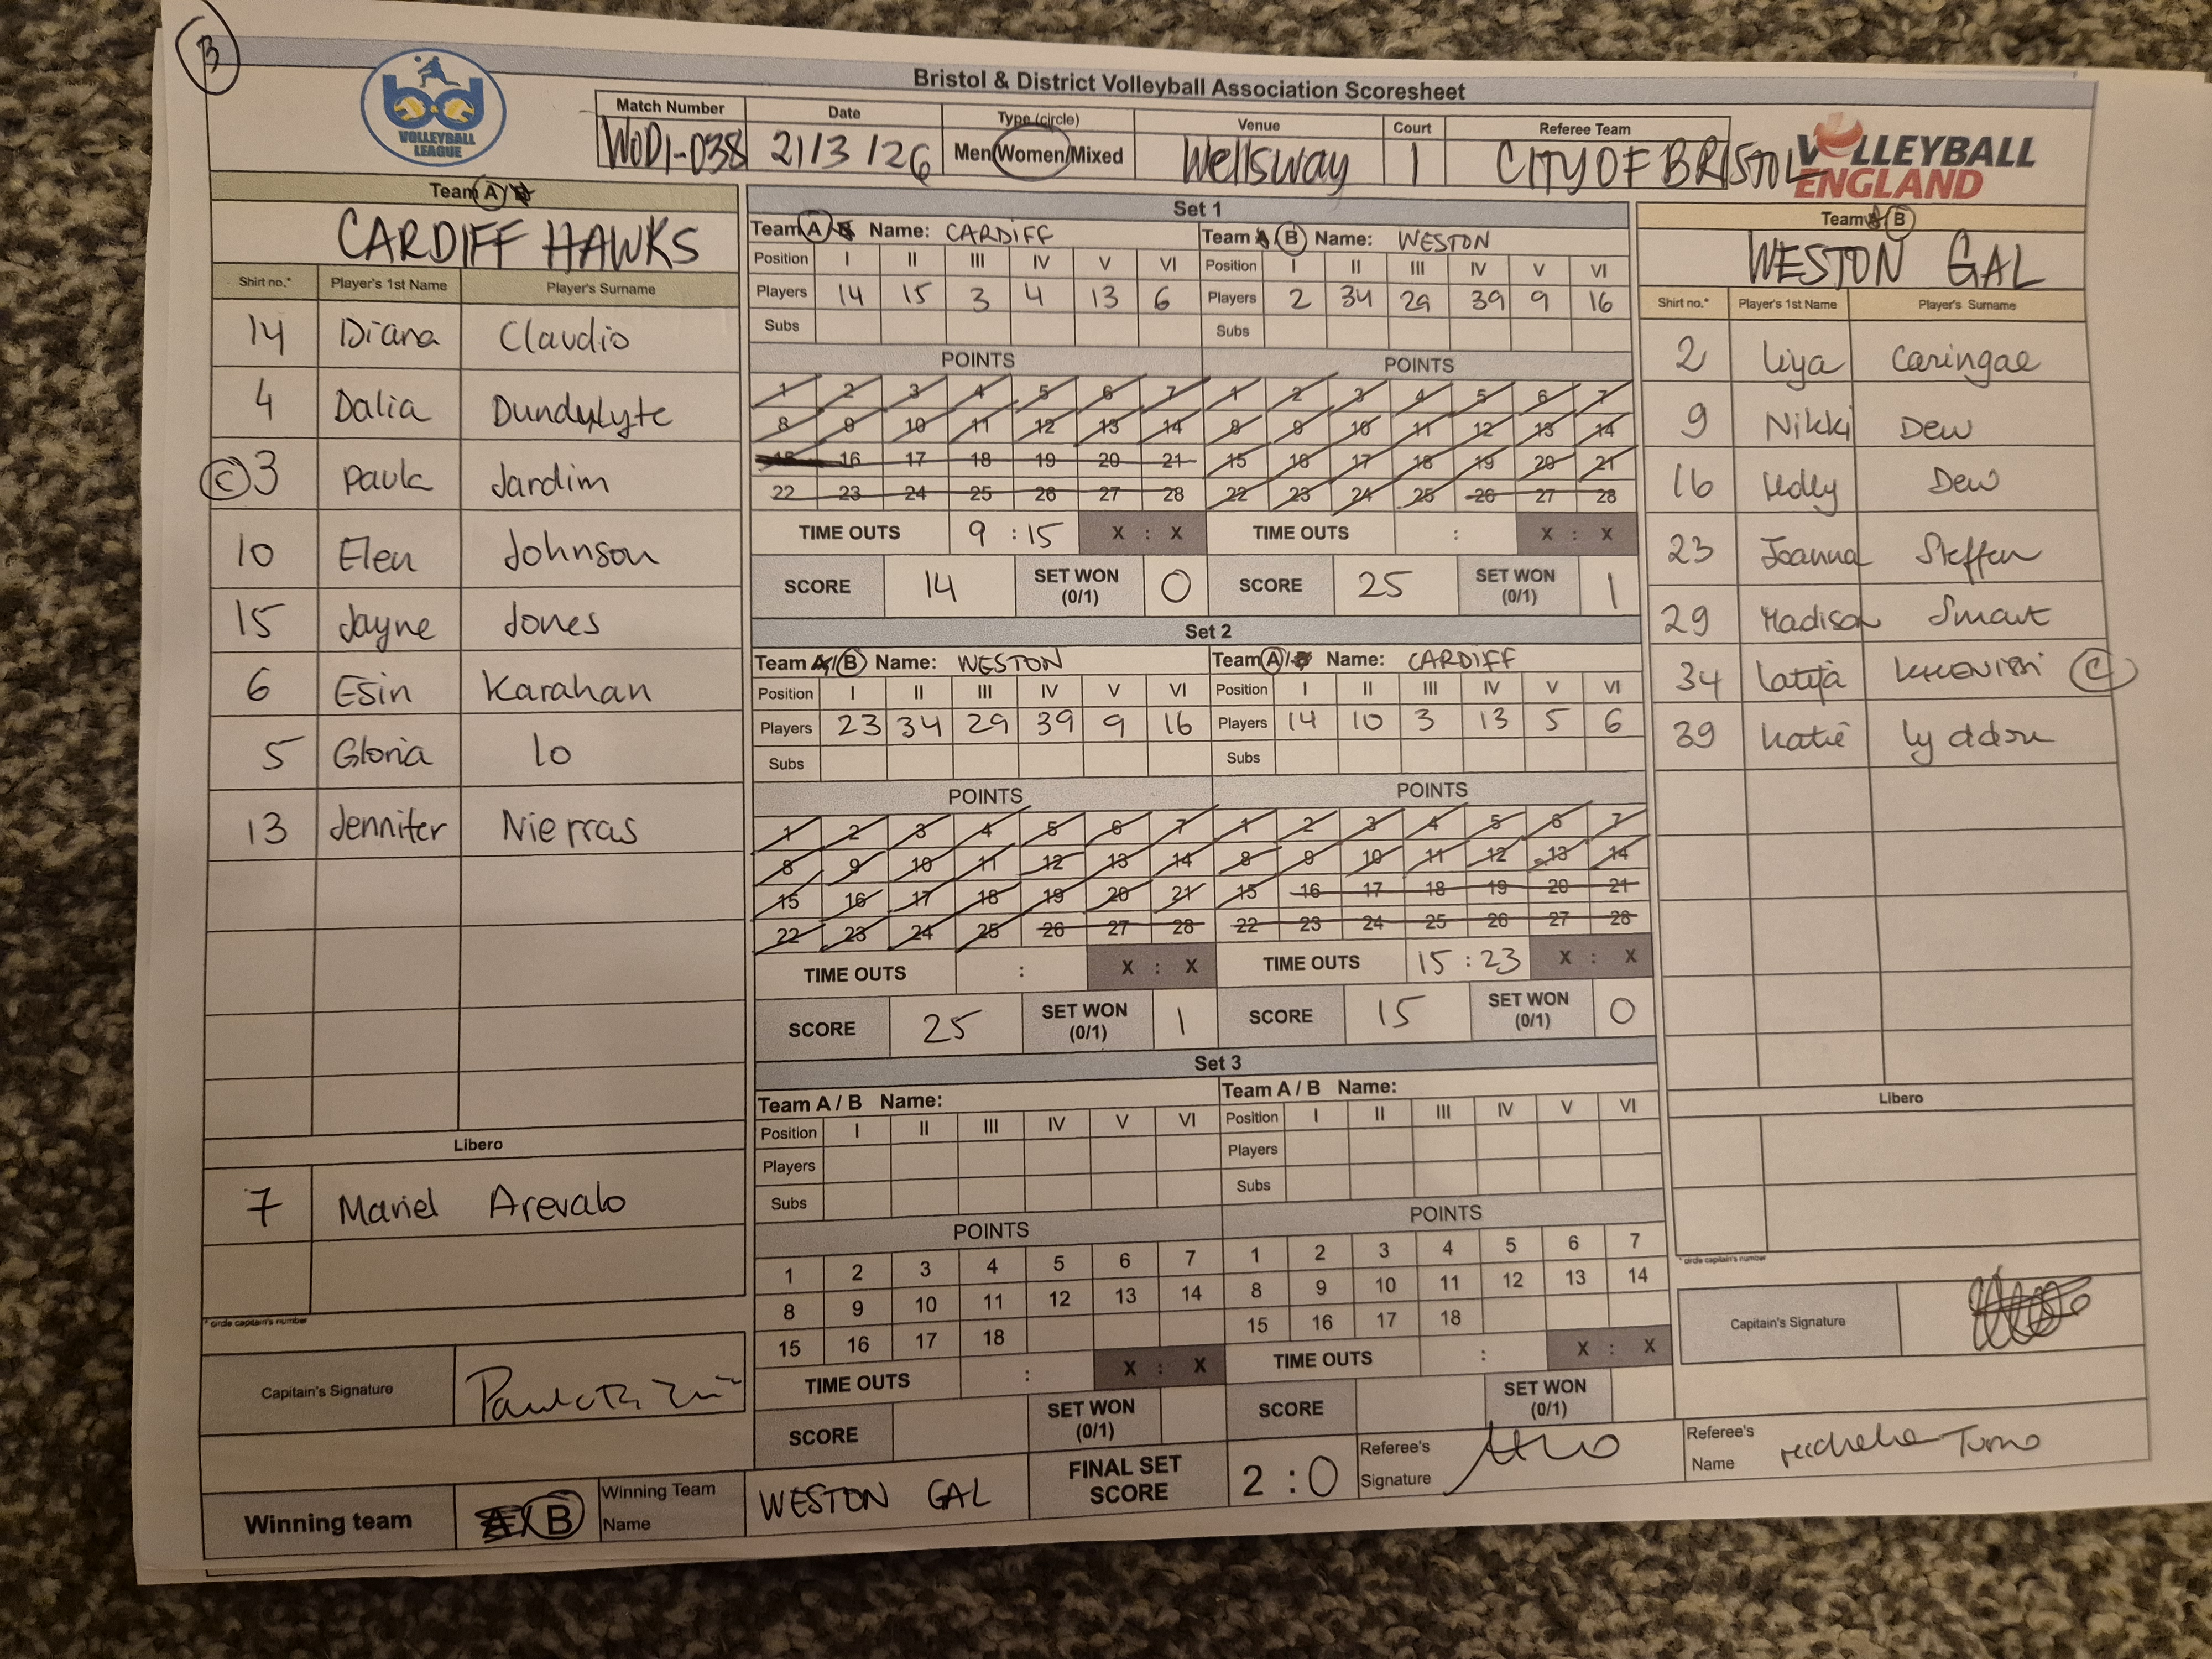 B
Bristol & District Volleyball Association Scoresheet
VOLLEYBALL
LEAGUE
Match Number Date Type (circle) Venue Court Referee Team
WOD1-038 21/3/26 Men/Women/Mixed Wellsway 1 CITY OF BRISTOL
VOLLEYBALL
ENGLAND
Team A / B
CARDIFF HAWKS
Shirt no.* Player's 1st Name Player's Surname
14 Diana Claudio
4 Dalia Dundulyte
(C) 3 Paula Jardim
10 Elen Johnson
15 Jayne Jones
6 Esin Karahan
5 Gloria lo
13 Jennifer Nierras
Libero
7 Mariel Arevalo
* circle captain's number
Capitain's Signature
Set 1
Team A / B Name: CARDIFF Team A / B Name: WESTON
Position I II III IV V VI Position I II III IV V VI
Players 14 15 3 4 13 6 Players 2 34 29 39 9 16
Subs Subs
POINTS POINTS
1 2 3 4 5 6 7 1 2 3 4 5 6 7
8 9 10 11 12 13 14 8 9 10 11 12 13 14
15 16 17 18 19 20 21 15 16 17 18 19 20 21
22 23 24 25 26 27 28 22 23 24 25 26 27 28
TIME OUTS 9 : 15 X : X TIME OUTS : X : X
SCORE 14 SET WON (0/1) 0 SCORE 25 SET WON (0/1) 1
Set 2
Team A / B Name: WESTON Team A / B Name: CARDIFF
Position I II III IV V VI Position I II III IV V VI
Players 23 34 29 39 9 16 Players 14 10 3 13 5 6
Subs Subs
POINTS POINTS
1 2 3 4 5 6 7 1 2 3 4 5 6 7
8 9 10 11 12 13 14 8 9 10 11 12 13 14
15 16 17 18 19 20 21 15 16 17 18 19 20 21
22 23 24 25 26 27 28 22 23 24 25 26 27 28
TIME OUTS : X : X TIME OUTS 15 : 23 X : X
SCORE 25 SET WON (0/1) 1 SCORE 15 SET WON (0/1) 0
Set 3
Team A / B Name: Team A / B Name:
Position I II III IV V VI Position I II III IV V VI
Players Players
Subs Subs
POINTS POINTS
1 2 3 4 5 6 7 1 2 3 4 5 6 7
8 9 10 11 12 13 14 8 9 10 11 12 13 14
15 16 17 18 15 16 17 18
TIME OUTS : X : X TIME OUTS : X : X
SCORE SET WON (0/1) SCORE SET WON (0/1)
Team A / B
WESTON GAL
Shirt no.* Player's 1st Name Player's Surname
2 Liya Caringae
9 Nikki Dew
16 Holly Dew
23 Joanna Steffen
29 Madison Smart
34 (C)
39 Katie Lyddon
Libero
* circle captain's number
Capitain's Signature
Winning team A / B Winning Team Name WESTON GAL FINAL SET SCORE 2 : 0 Referee's Signature Referee's Name